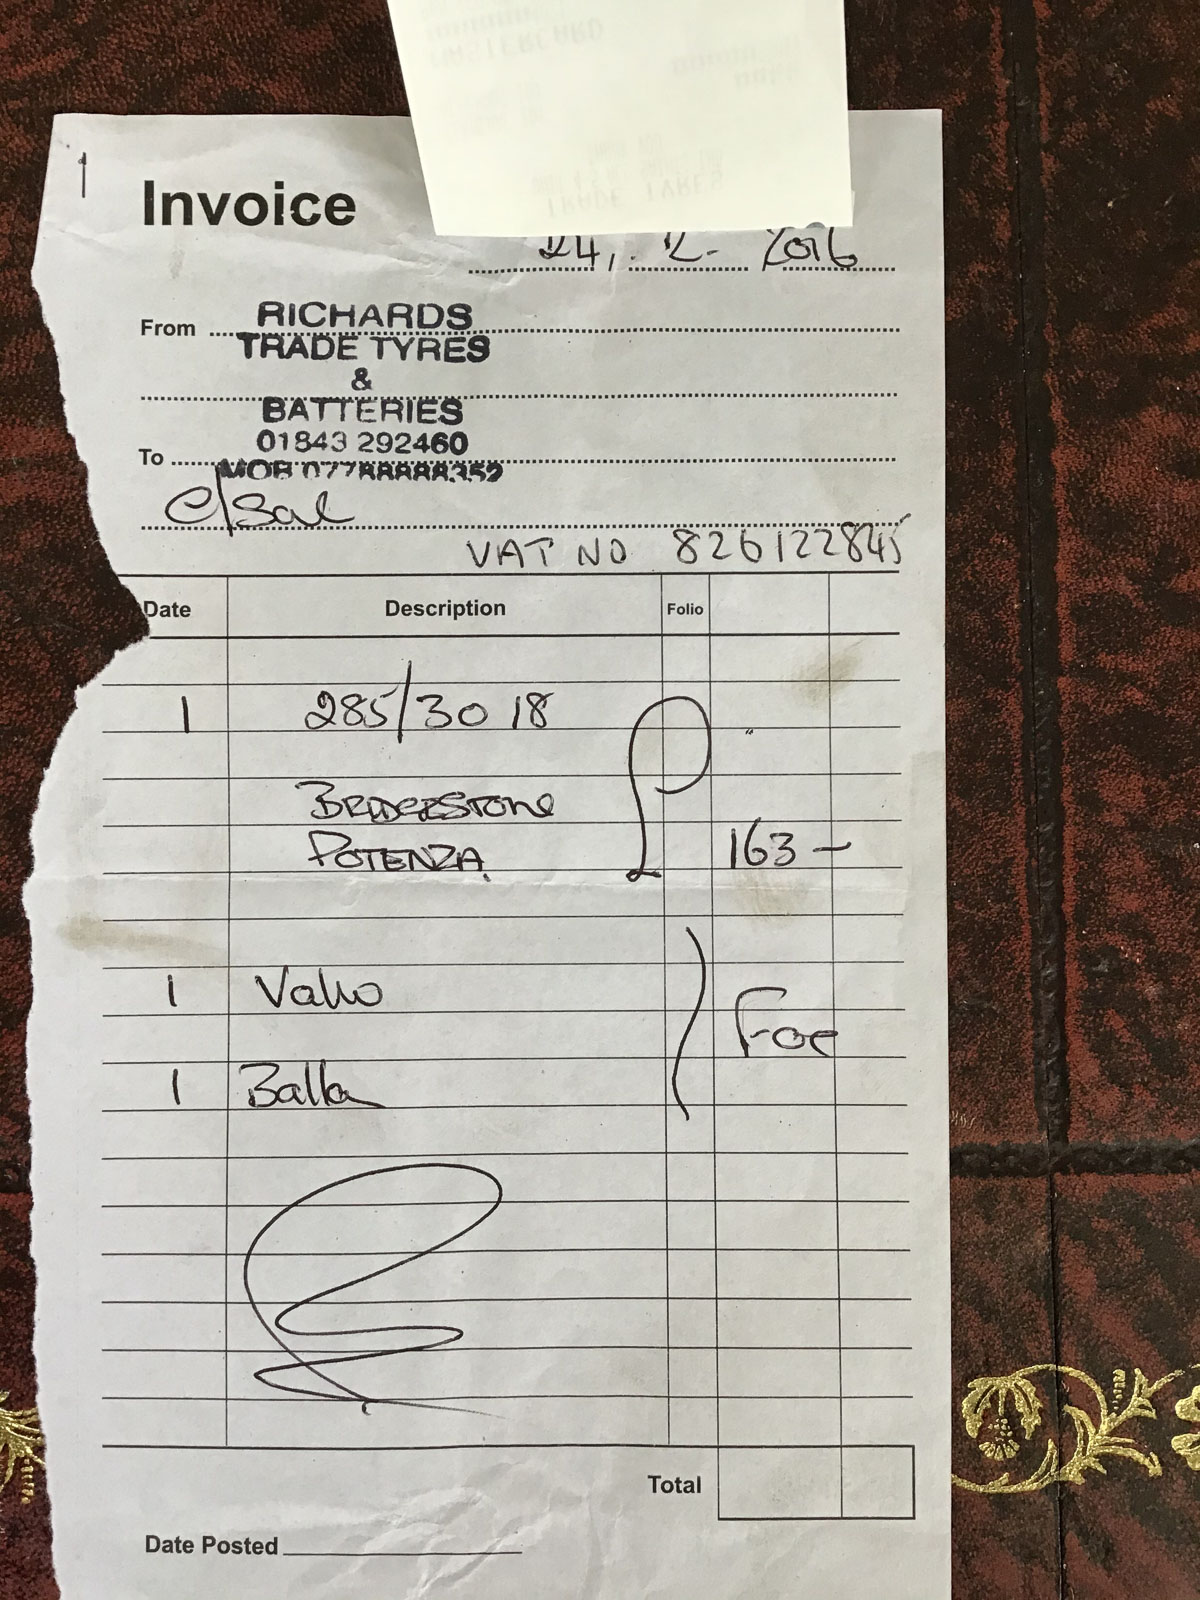 MASTERCARD
TRADE TYRES
Invoice
24, . 12 - 2016
From
RICHARDS
TRADE TYRES
&
BATTERIES
01843 292460
To
MOB 07788888352
c/sal
VAT NO 826122845
Date Description Folio
1 285/30 18
BRIDGESTONE
POTENZA.
163 -
1 Valve
Foc
1 Balla
Total
Date Posted